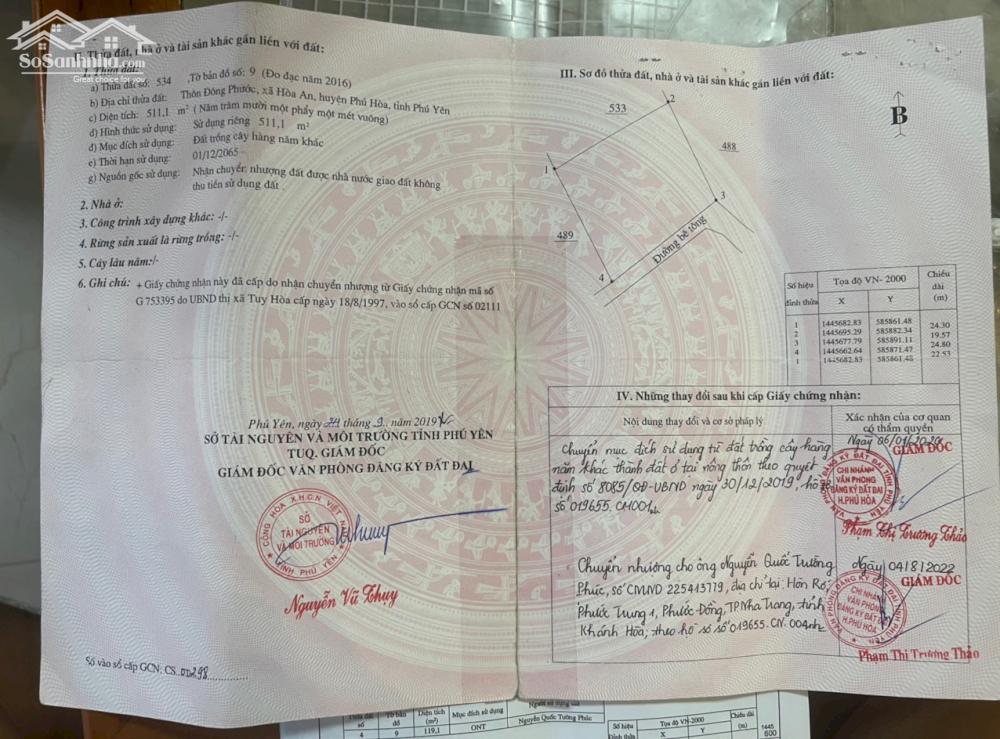 SoSanhnha.com
Great choice for you
II. Thửa đất, nhà ở và tài sản khác gắn liền với đất:
1. Thửa đất:
a) Thửa đất số: 534 ,Tờ bản đồ số: 9 (Đo đạc năm 2016)
b) Địa chỉ thửa đất: Thôn Đông Phước, xã Hòa An, huyện Phú Hòa, tỉnh Phú Yên
c) Diện tích: 511,1 m² (Năm trăm mười một phẩy một mét vuông)
d) Hình thức sử dụng: Sử dụng riêng 511,1 m²
đ) Mục đích sử dụng: Đất trồng cây hàng năm khác
e) Thời hạn sử dụng: 01/12/2065
g) Nguồn gốc sử dụng: Nhận chuyển nhượng đất được nhà nước giao đất không
thu tiền sử dụng đất
2. Nhà ở:
3. Công trình xây dựng khác: -/-
4. Rừng sản xuất là rừng trồng: -/-
5. Cây lâu năm:/-
6. Ghi chú: + Giấy chứng nhận này đã cấp do nhận chuyển nhượng từ Giấy chứng nhận mã số
G 753395 do UBND thị xã Tuy Hòa cấp ngày 18/8/1997, vào sổ cấp GCN số 02111
Phú Yên, ngày 24 tháng 9 năm 2019
SỞ TÀI NGUYÊN VÀ MÔI TRƯỜNG TỈNH PHÚ YÊN
TUQ. GIÁM ĐỐC
GIÁM ĐỐC VĂN PHÒNG ĐĂNG KÝ ĐẤT ĐAI
CỘNG HÒA X.H.C.N VIỆT NAM
SỞ
TÀI NGUYÊN
VÀ MÔI TRƯỜNG
TỈNH PHÚ YÊN
Nguyễn Vũ Thuy
Số vào sổ cấp GCN: CS 00298
III. Sơ đồ thửa đất, nhà ở và tài sản khác gắn liền với đất:
B
533
2
488
1
3
489
Đường bê tông
4
Số hiệu đỉnh thửa Tọa độ VN- 2000 Chiều dài (m)
X Y
1 1445682.83 585861.48
24.30
2 1445695.29 585882.34
19.57
3 1445677.79 585891.11
24.80
4 1445662.64 585871.47
22.53
1 1445682.83 585861.48
IV. Những thay đổi sau khi cấp Giấy chứng nhận:
Nội dung thay đổi và cơ sở pháp lý
Xác nhận của cơ quan
có thẩm quyền
Chuyển mục đích sử dụng từ đất trồng cây hàng
năm khác thành đất ở tại nông thôn theo quyết
định số 8085/QĐ-UBND ngày 30/12/2019, hồ sơ
số 019655.CM001
Ngày 06/01/2020
GIÁM ĐỐC
CHI NHÁNH
VĂN PHÒNG
ĐĂNG KÝ ĐẤT ĐAI
H.PHÚ HÒA
Phạm Thị Trương Thảo
Chuyển nhượng cho ông Nguyễn Quốc Trường
Phúc, số CMND 225413719, địa chỉ tại: Hòn Rớ
Phước Trung 1, Phước Đồng, TP Nha Trang, tỉnh
Khánh Hòa; theo hồ sơ số 019655.CN.004
Ngày 04/8/2022
GIÁM ĐỐC
CHI NHÁNH
VĂN PHÒNG
ĐĂNG KÝ ĐẤT ĐAI
H.PHÚ HÒA
Phạm Thị Trương Thảo
Thửa đất số Tờ bản đồ Diện tích (m²) Mục đích sử dụng Người sử dụng đất
4 9 119,1 ONT Nguyễn Quốc Tường Phúc
Số hiệu Đỉnh thửa Tọa độ VN-2000 Chiều dài (m)
X Y
1445
600